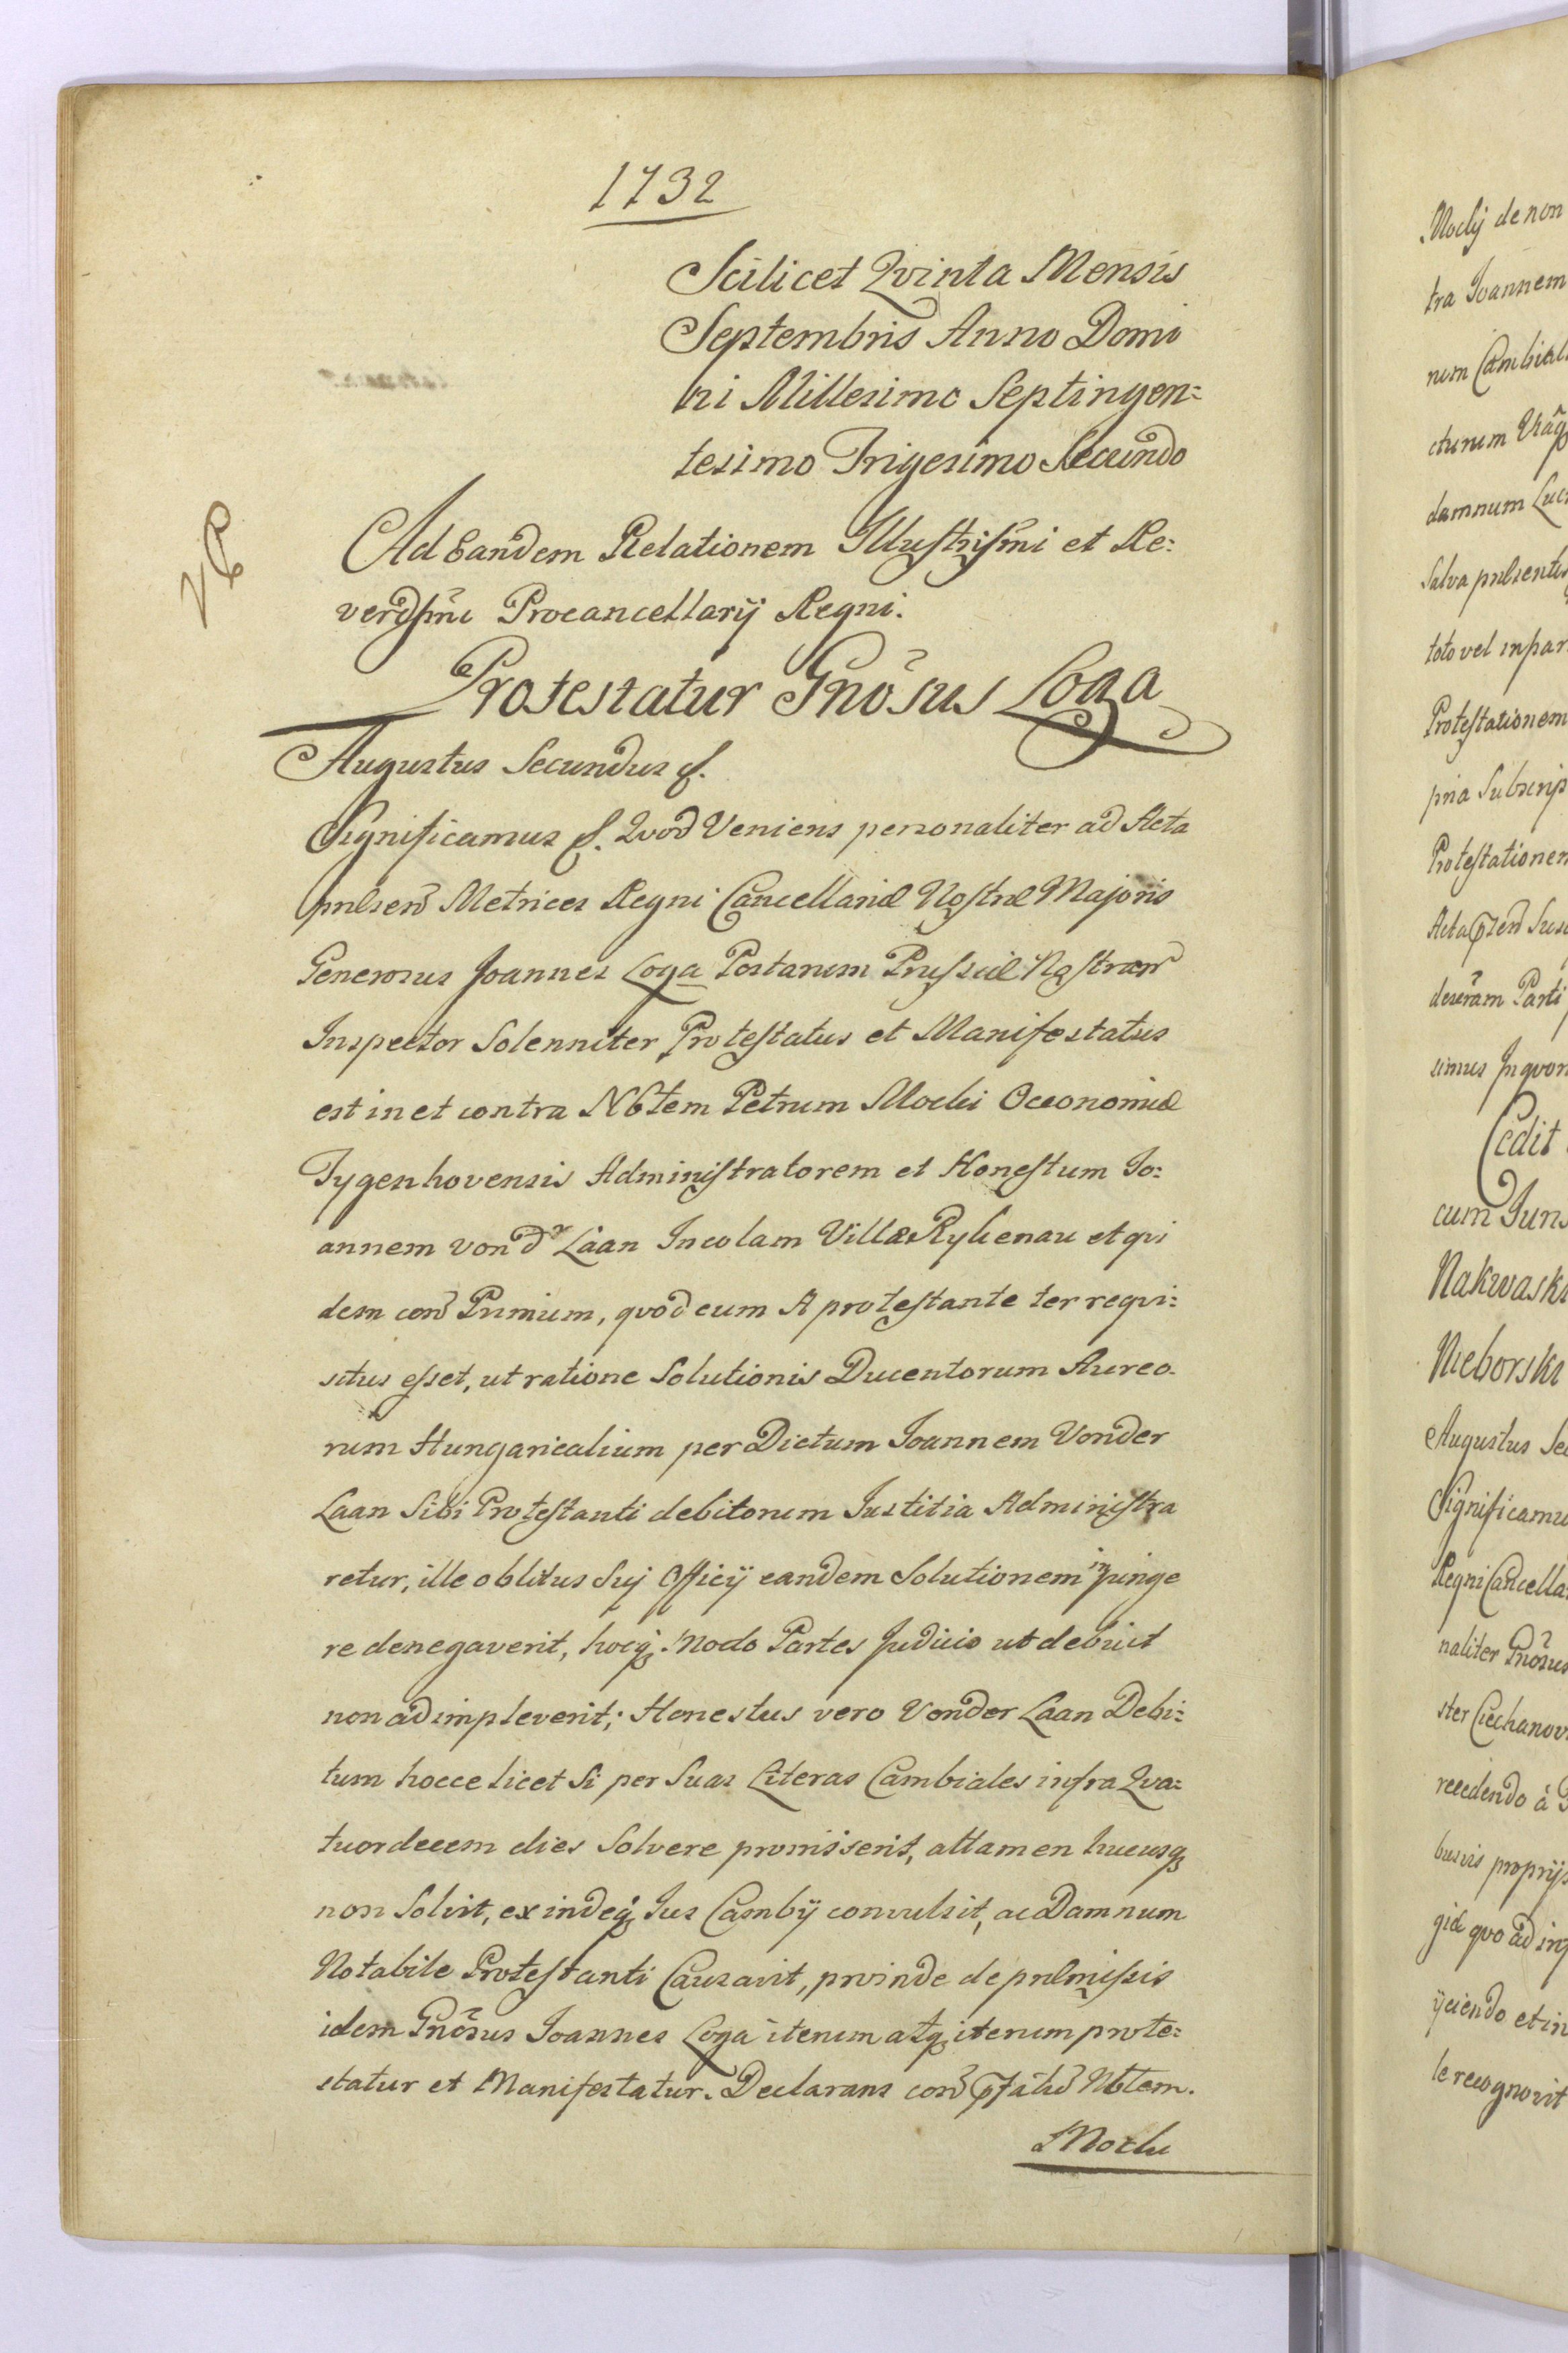 1732
Scilicet Qvinta Mensis
Septembris Anno Domi
ni Millesimo Septingen=
tesimo Trigesimo Secundo
Ad Eandem Relationem Illustrissmi et Re=
verdssmi Procancellarij Regni.
Protestatur Gnosus Loga
Augustus Secundus &.
Significamus &. Qvod Veniens personaliter ad Acta
præsen Metrices Regni Cancellariæ Nostræ Majoris
Generosus Joannes Loga Postarum Prussiæ Nostrarum
Inspector Solenniter Protestatus et Manifestatus
est in et contra Nbtem Petrum Mocki Oeconomiæ
Tygenhovensis Administratorem et Honestum Jo=
annem von dr Laan Incolam Villæ Rykenau et qvi
dem con Primum, qvod cum A protestante ter reqvi=
situs esset, ut ratione Solutionis Ducentorum Aureo.
rum Hungaricalium per Dictum Joannem Vonder
Laan Sibi Protestanti debitorum Justitia Administra
retur, ille oblitus Suj Officij eandem Solutionem injunge
re denegaverit, hocq; modo Partes Judicis ut debuit
non adimpleverit; Honestus vero Vonder Laan Debi=
tum hocce licet Si per Suas Literas Cambiales infra Qva=
tuordecem dies Solvere promisserit, attamen hucusq;
non Solvit, ex indeq; Jus Cambij convulsit, ac Damnum
Notabile Protestanti Causavit, proinde de præmissis
idem Gnosus Joannes Loga iterum atq; iterum prote=
statur et Manifestatur. Declarans con Nbtem.
Mocki
Mockij de non
tra Joannem
num Cambial
cturum
damnum Luc
Salva præsentis
toto vel in par
Protestationem
pria Subscrip
Protestationem
Acta Susc
Parti
simus In qvor
Cedit
cum Juns
Nakwaski
Nieborski
Augustus Se
Significamu
Regni Cancella
naliter Gnosus
ster Ciechanov
recedendo à
busvis proprijs
giæ qvo ad in
ijciendo et in
le recognovit